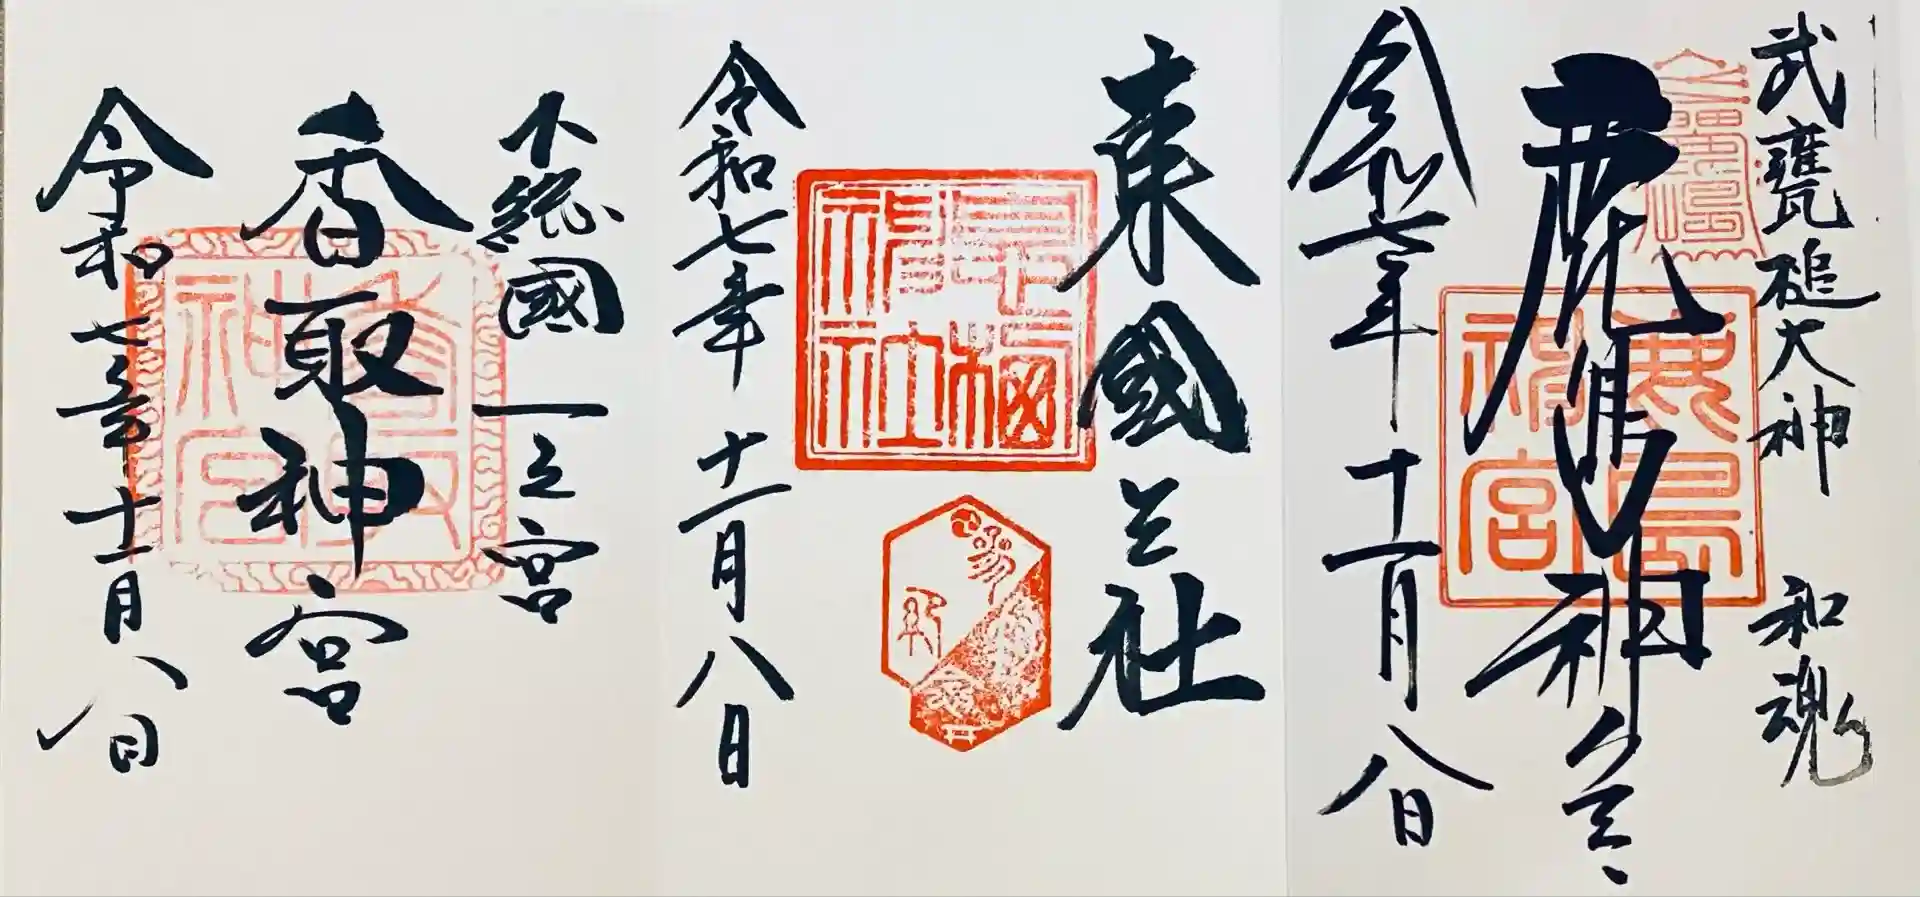 武甕槌大神 和魂
鹿島神宮
鹿島神宮
令和七年十一月八日
東國三社
息栖神社
令和七年十一月八日
下総國一之宮
香取神宮
香取神宮
令和七年十一月八日